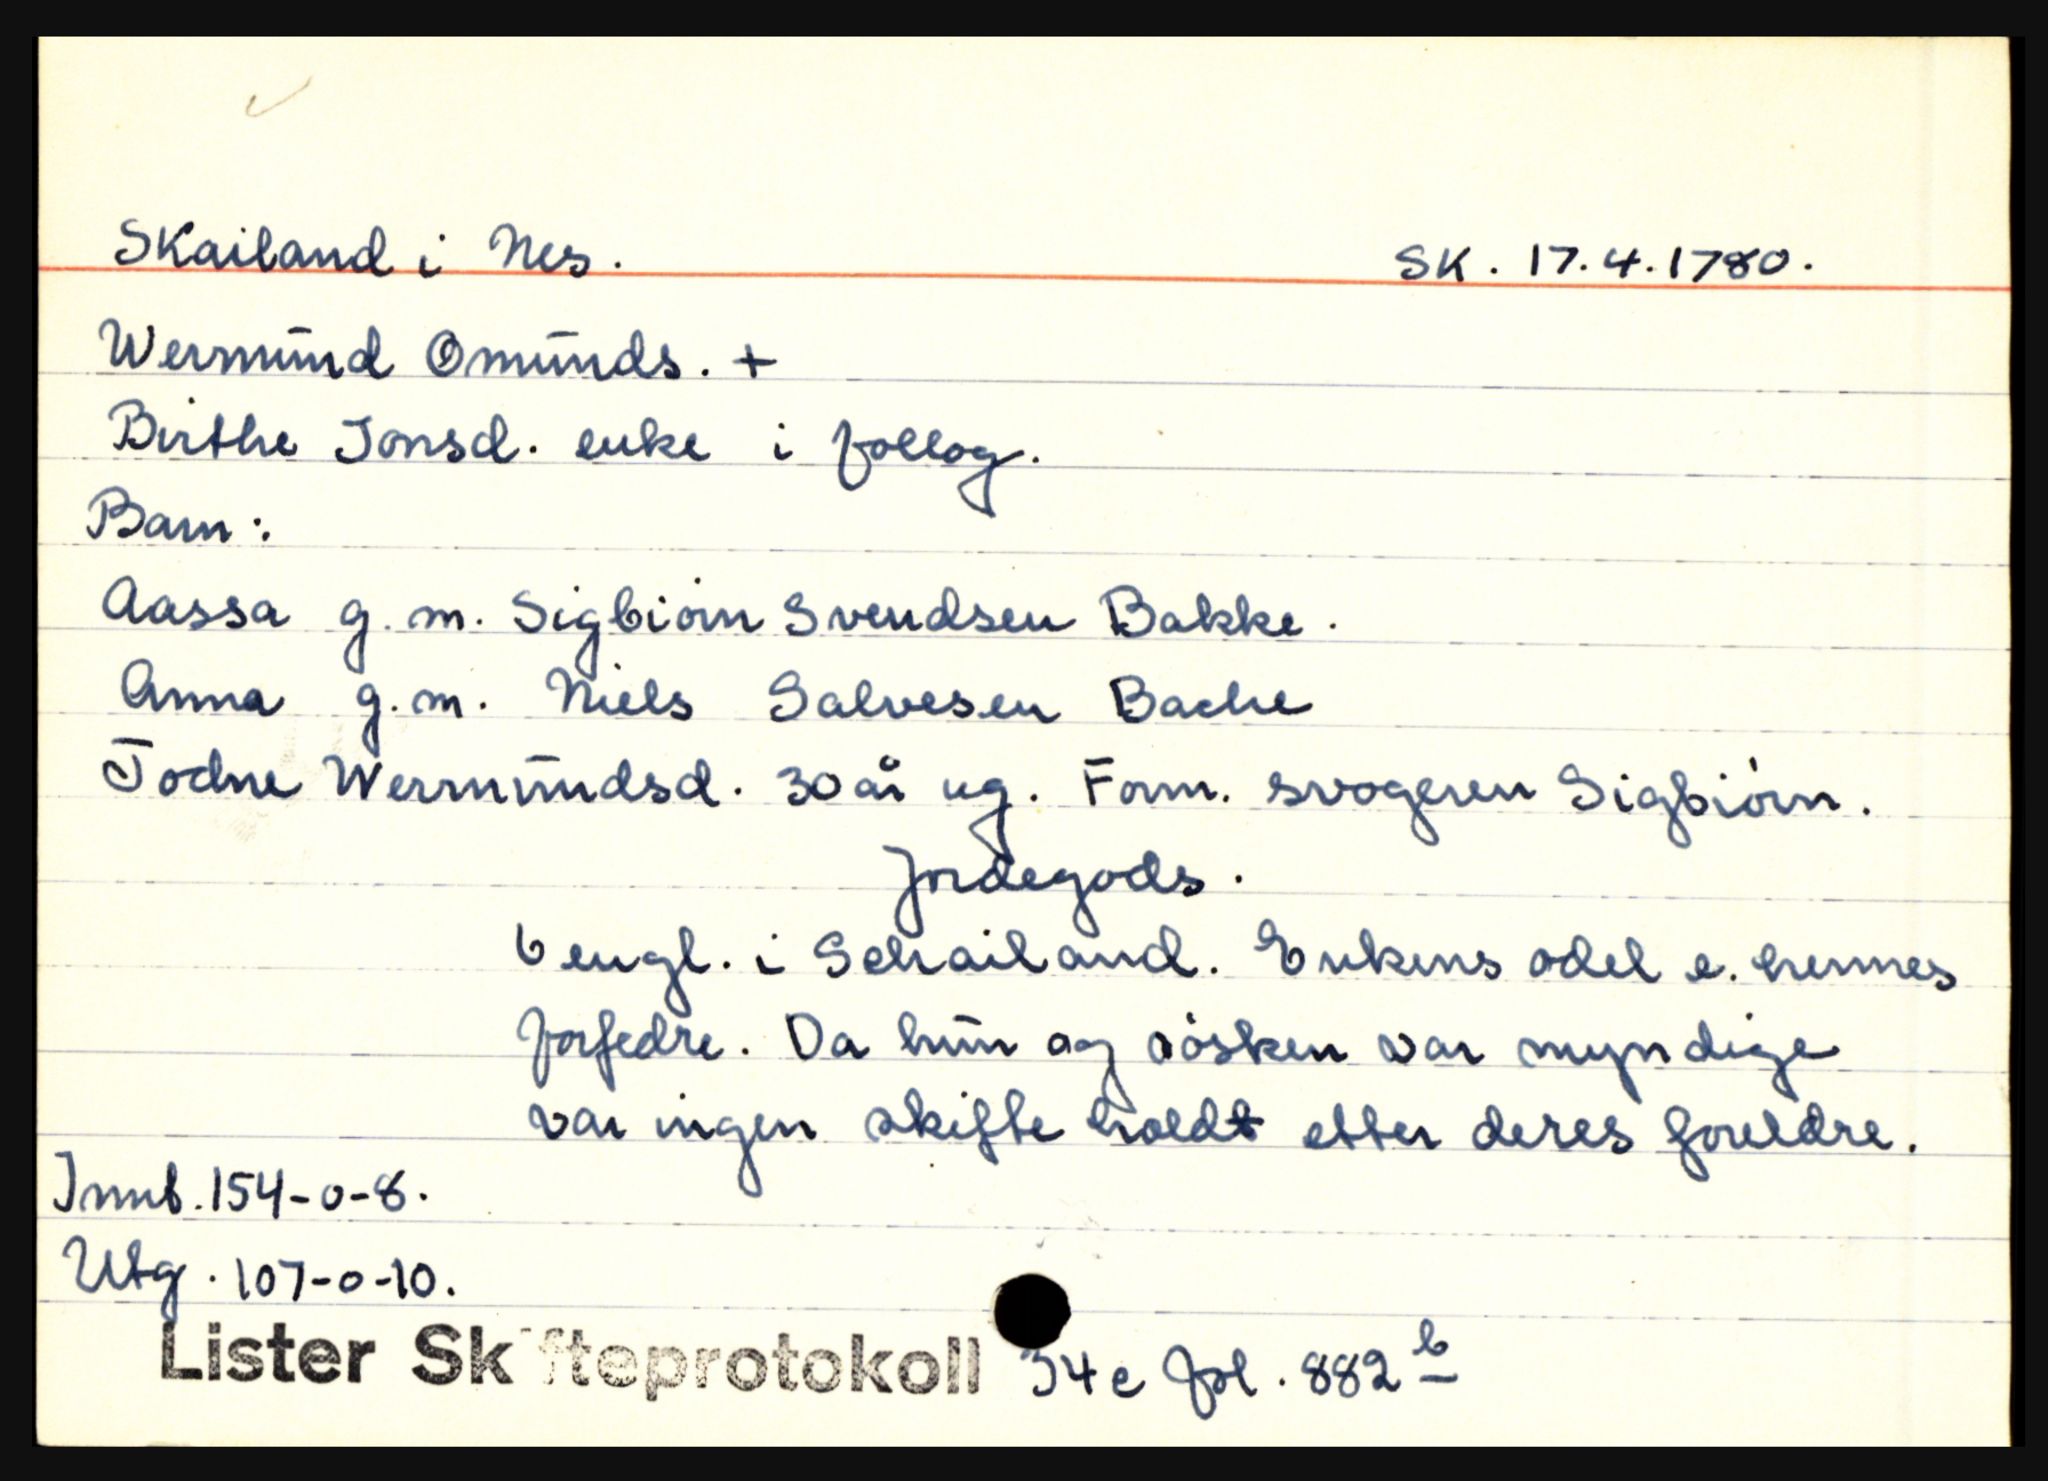 Skailand i Nes. SK. 17.4.1780.
Wermund Omunds. +
Birthe Jonsd. enke i follog.
Barn:
Aassa g.m. Sigbiörn Svendsen Bakke.
Anna g.m. Niels Salvesen Bache
Todne Wermundsd. 30 år ug. Form. svogeren Sigbiörn.
Jordegods.
6 engl. i Schailand. Enkens odel e. hennes
forfedre. Da hun og søsken var myndige
var ingen skifte holdt etter deres foreldre.
Innb. 154-0-8.
Utg. 107-0-10.
Lister Skifteprotokoll 34c fol. 882 b